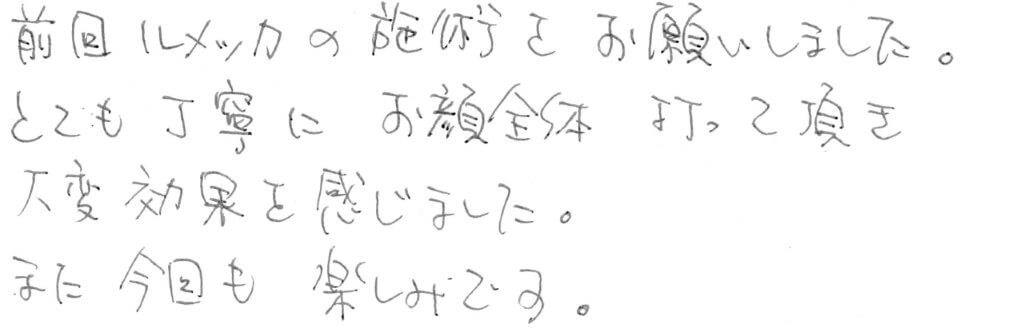 前回ルメッカの施術をお願いしました。
とても丁寧にお顔全体打って頂き
大変効果を感じました。
また今回も楽しみです。